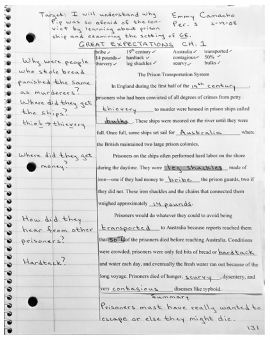 Target: I will understand why Emmy Camacho
Pip was so afraid of the con- Per. 2 
vict by learning about prison
ship and examining the setting of GE.
GREAT EXPECTATIONS CH. 1
bribe ✓ 19th century ✓ Australia ✓ transported ✓
14 pounds ✓ hardtack ✓ contagious ✓ 50% ✓
thievery ✓ leg shackles ✓ scurvy ✓ hulks ✓
Why were people
who stole bread
punished the same
as murderers?
Where did they get
the ships?
think → thievery
The Prison Transportation System
In England during the first half of the 19th century
prisoners who had been convicted of all degrees of crimes from petty
thievery to murder were housed in prison ships called
hulks. These ships were moored on the river until they were
full. Once full, some ships set sail for Australia where
the British maintained two large prison colonies.
Where did they get
money?
Prisoners on the ships often performed hard labor on the shore
during the daytime. They wore leg shackles made of
iron—one if they had money to bribe the prison guards, two if
they did not. These iron shackles and the chains that connected them
weighed approximately 14 pounds.
How did they
hear from other
prisoners?
Hardtack?
Prisoners would do whatever they could to avoid being
transported to Australia because reports reached them
that 50% of the prisoners died before reaching Australia. Conditions
were crowded; prisoners were only fed bits of bread or hardtack
and water each day, and eventually the fresh water ran out because of the
long voyage. Prisoners died of hunger, scurvy, dysentery, and
very contagious diseases like typhoid.
Summary
Prisoners must have really wanted to
escape or else they might die.
131